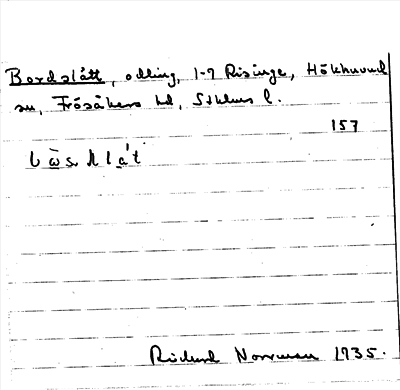 Bordslått, odling, 1-9 Risinge, Hökhuvud
sn, Frösåkers hd, Sthlms l.
157
Rickard Norrman 1935.